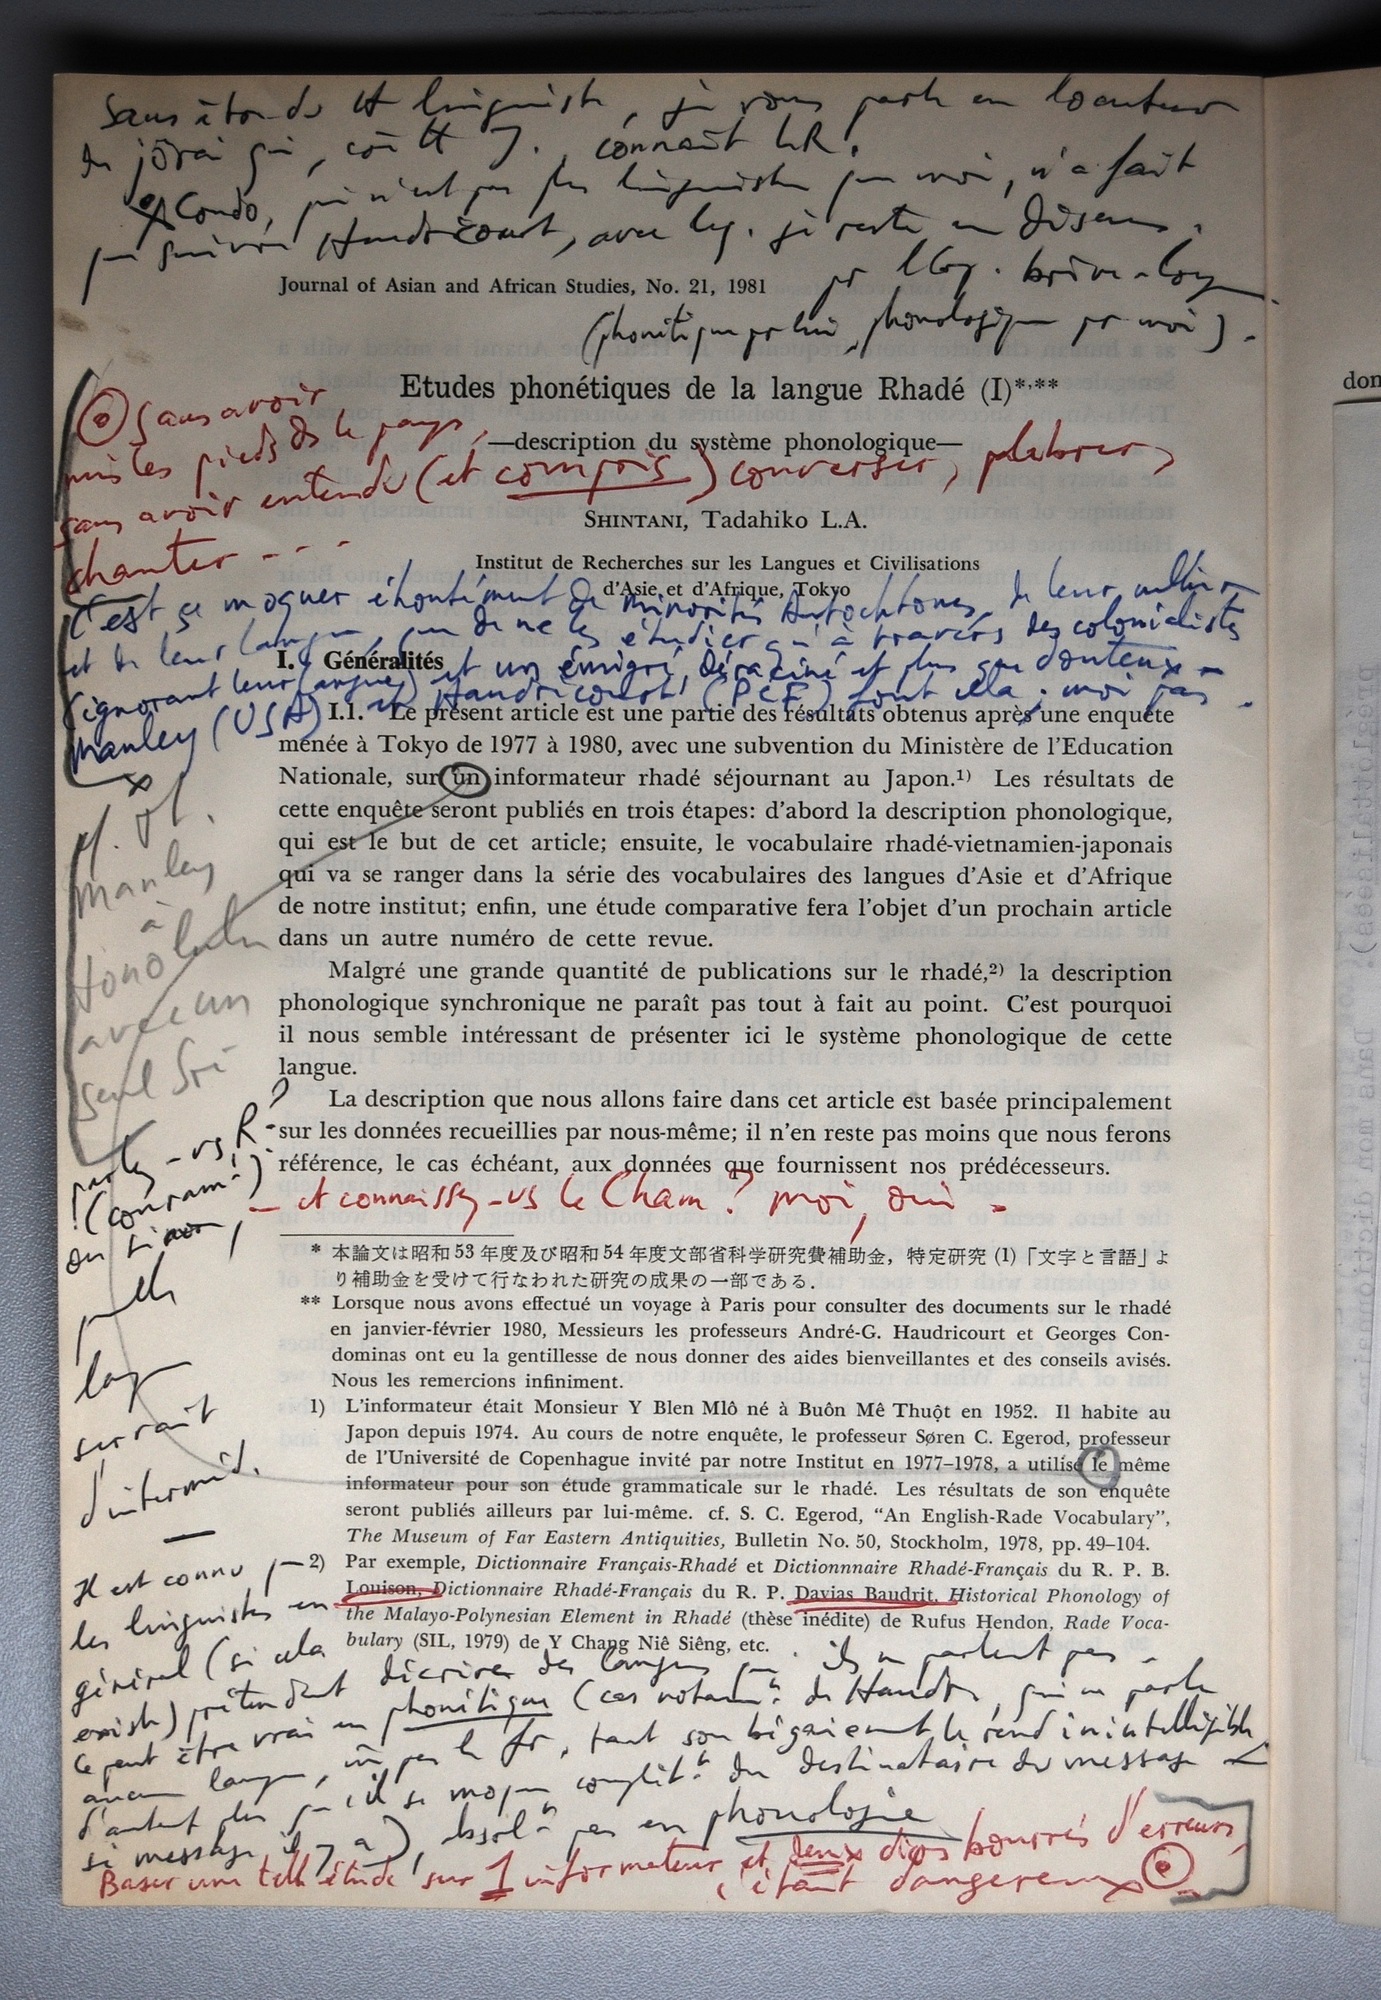 Sans être du tt linguiste, je vous parle en locuteur
du jörai qui, coe tt J., connaît le R.
Condo, qui n'est pas plus linguiste que moi, n'a fait
que suivre Haudricourt, avec leq. je reste en désacc.
pr l'log. brève-longue
(phonétique pr lui, phonologique pr moi).
Journal of Asian and African Studies, No. 21, 1981
Etudes phonétiques de la langue Rhadé (I)*,**
—description du système phonologique—
SHINTANI, Tadahiko L.A.
Institut de Recherches sur les Langues et Civilisations
d'Asie et d'Afrique, Tokyo
sans avoir
mis les pieds ds le pays,
sans avoir entendu (et compris) converser, palabrer,
chanter - - -
C'est se moquer éhontément de minorités autochtones, de leur culture
et de leur langue, que de ne les étudier qu'à travers des colonialistes
(ignorant leur langue) et un émigré, déraciné et plus que douteux -
Manley (USA) et Haudricourt (PCF) font cela; moi pas.
I. Généralités
I.1. Le présent article est une partie des résultats obtenus après une enquête
menée à Tokyo de 1977 à 1980, avec une subvention du Ministère de l'Education
Nationale, sur un informateur rhadé séjournant au Japon.1) Les résultats de
cette enquête seront publiés en trois étapes: d'abord la description phonologique,
qui est le but de cet article; ensuite, le vocabulaire rhadé-vietnamien-japonais
qui va se ranger dans la série des vocabulaires des langues d'Asie et d'Afrique
de notre institut; enfin, une étude comparative fera l'objet d'un prochain article
dans un autre numéro de cette revue.
Malgré une grande quantité de publications sur le rhadé,2) la description
phonologique synchronique ne paraît pas tout à fait au point. C'est pourquoi
il nous semble intéressant de présenter ici le système phonologique de cette
langue.
La description que nous allons faire dans cet article est basée principalement
sur les données recueillies par nous-même; il n'en reste pas moins que nous ferons
référence, le cas échéant, aux données que fournissent nos prédécesseurs.
Manley
à
Honolulu
avec un
seul Sré
parlez-vs R?
(couram<sup>t</sup>)
ou sinon,
quelle
langue
serrait
d'interméd.
- et connaissez-vs le Cham? moi, oui -
* 本論文は昭和53年度及び昭和54年度文部省科学研究費補助金,特定研究(1)「文字と言語」よ
り補助金を受けて行なわれた研究の成果の一部である.
** Lorsque nous avons effectué un voyage à Paris pour consulter des documents sur le rhadé
en janvier-février 1980, Messieurs les professeurs André-G. Haudricourt et Georges Con-
dominas ont eu la gentillesse de nous donner des aides bienveillantes et des conseils avisés.
Nous les remercions infiniment.
1) L'informateur était Monsieur Y Blen Mlô né à Buôn Mê Thuột en 1952. Il habite au
Japon depuis 1974. Au cours de notre enquête, le professeur Søren C. Egerod, professeur
de l'Université de Copenhague invité par notre Institut en 1977–1978, a utilisé le même
informateur pour son étude grammaticale sur le rhadé. Les résultats de son enquête
seront publiés ailleurs par lui-même. cf. S. C. Egerod, "An English-Rade Vocabulary",
The Museum of Far Eastern Antiquities, Bulletin No. 50, Stockholm, 1978, pp. 49–104.
2) Par exemple, Dictionnaire Français-Rhadé et Dictionnnaire Rhadé-Français du R. P. B.
Louison, Dictionnaire Rhadé-Français du R. P. Davias Baudrit, Historical Phonology of
the Malayo-Polynesian Element in Rhadé (thèse inédite) de Rufus Hendon, Rade Voca-
bulary (SIL, 1979) de Y Chang Niê Siêng, etc.
Il est connu que
les linguistes en
général (si cela
existe) prétendent décrire des langues qu'ils ne parlent pas -
ce peut être vrai en phonétique (cas notam<sup>t</sup> de Haudr, qui ne parle
aucune langue, m pas le fr, tant son bégaiement le rend inintelligible
d'autant plus qu'il se moque complèt<sup>t</sup> du destinataire du message
si message il y a), absol<sup>t</sup> pas en phonologie
Baser une telle étude sur 1 informateur et deux dios bourrés d'erreurs,
c'était dangereux